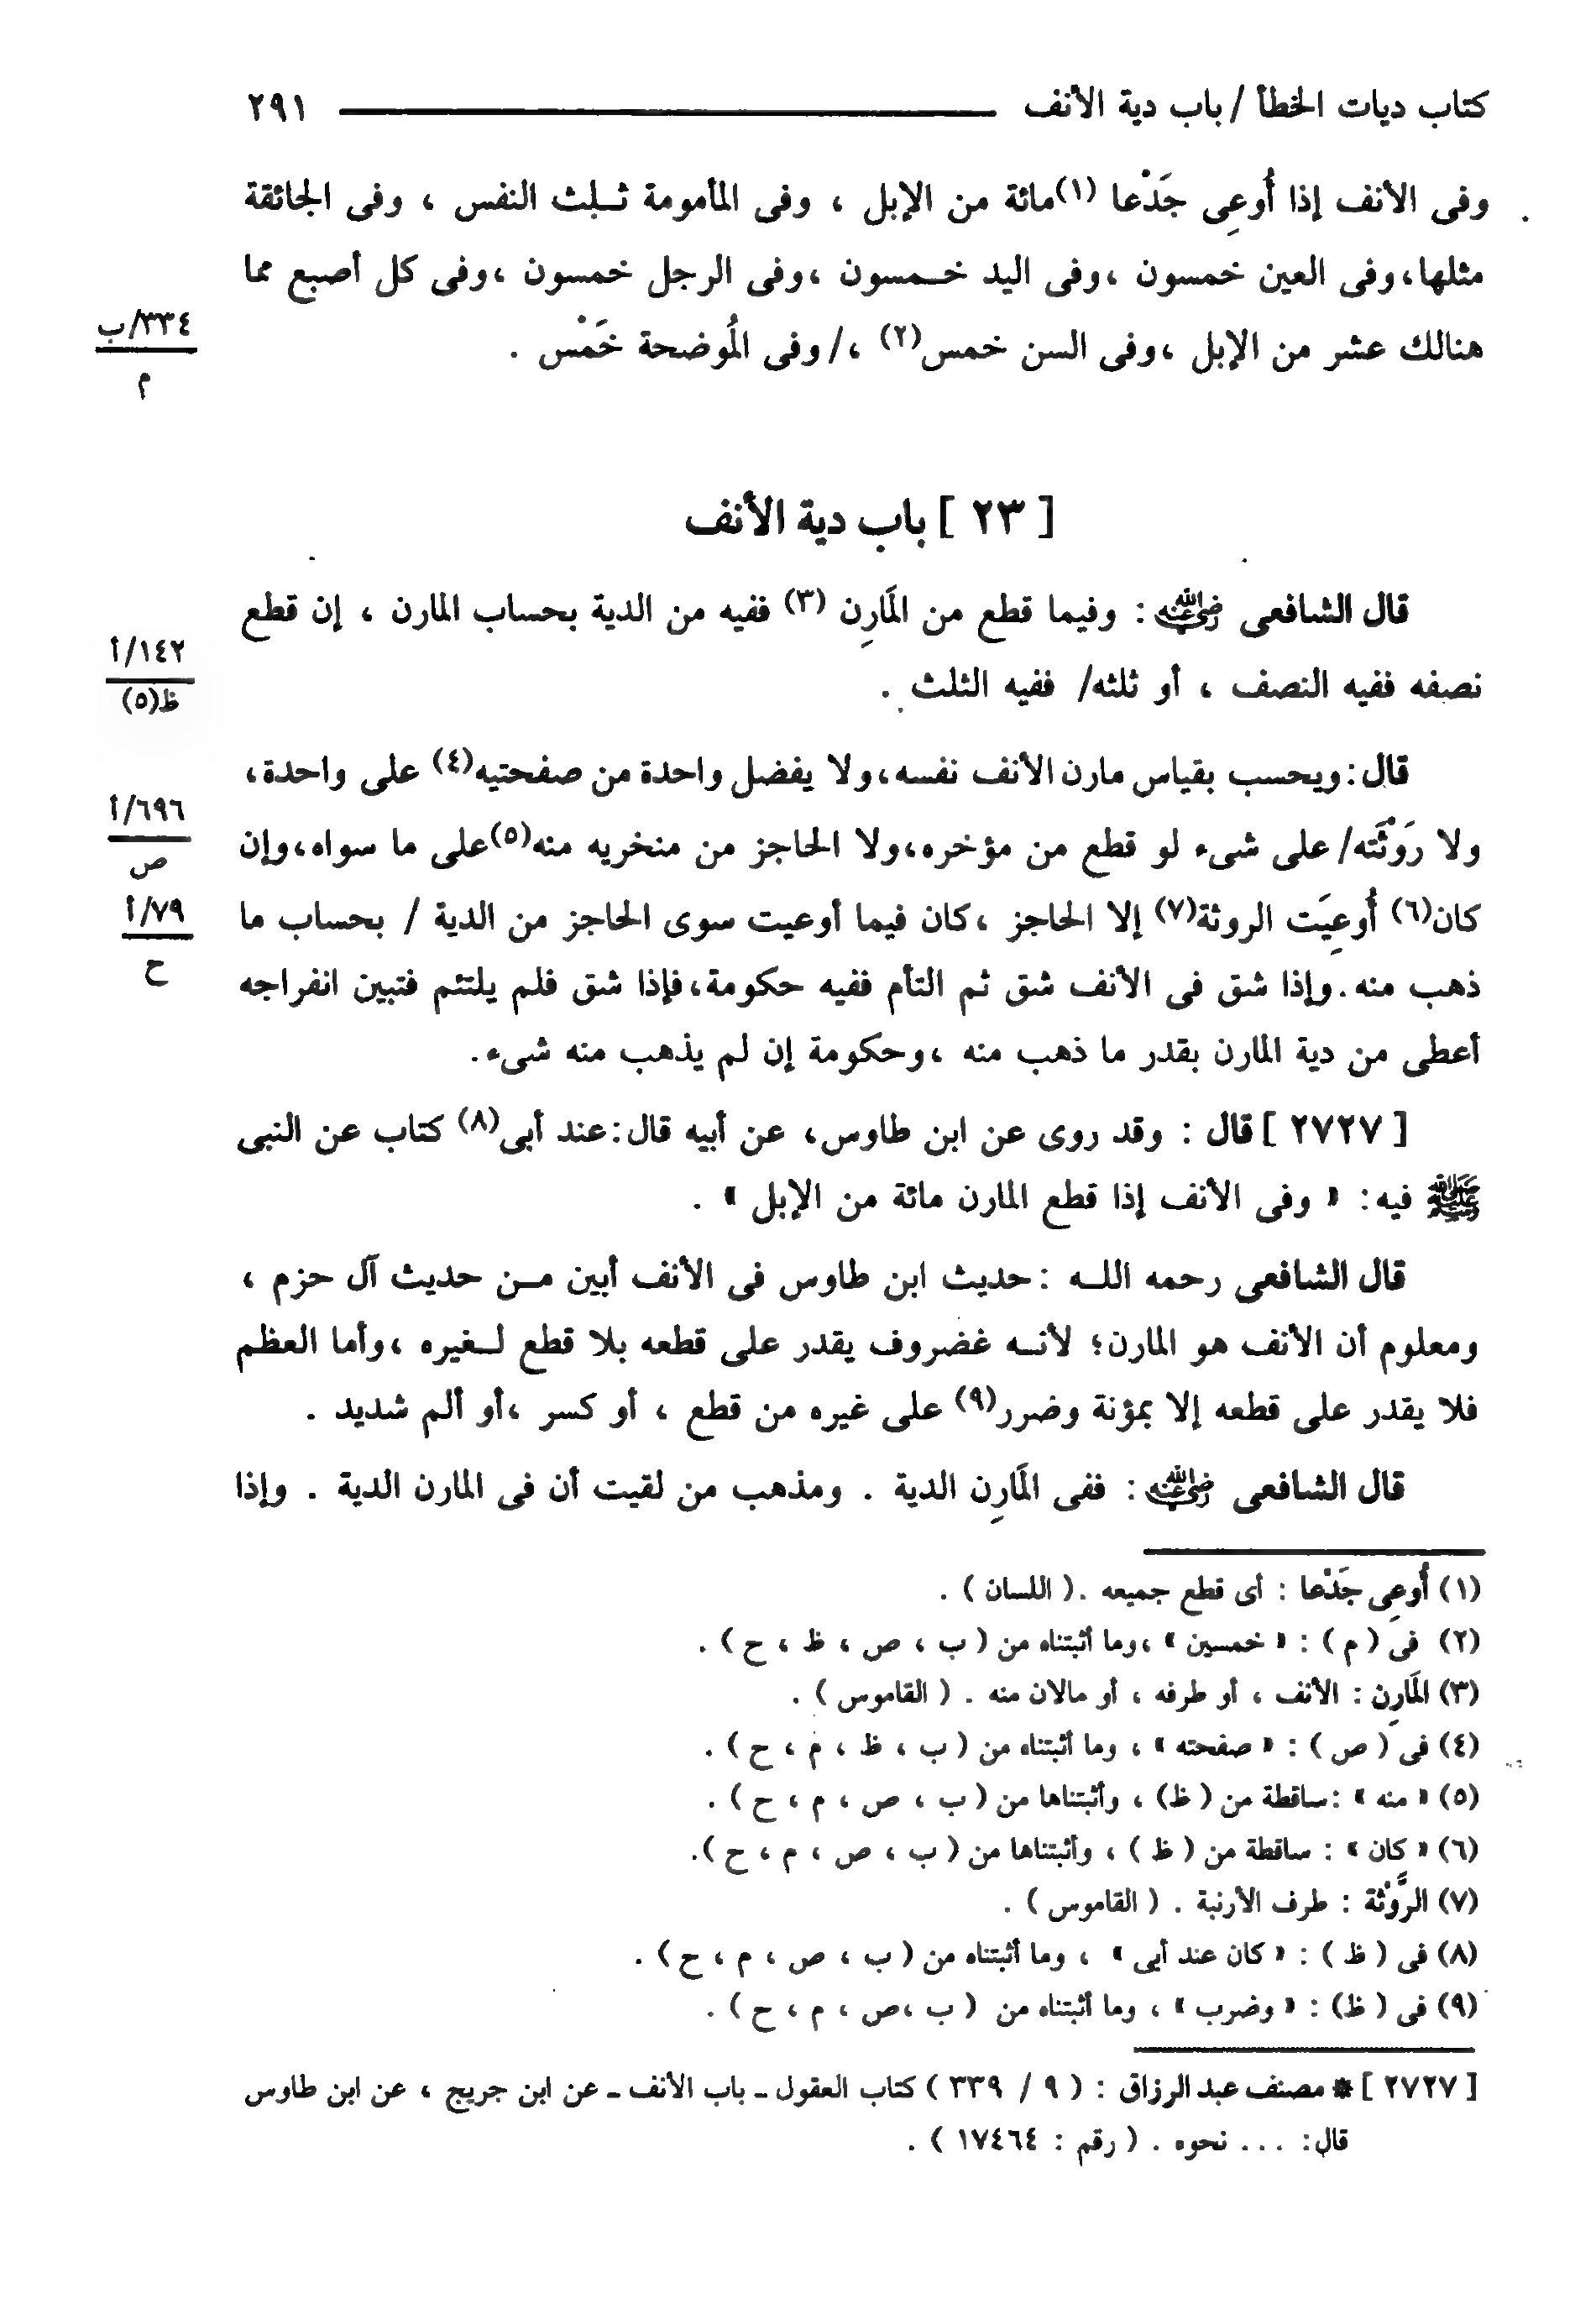 كتاب ديات الخطأ / باب دية الأنف ٢٩١
وفى الأنف إذا أُوعِى جَدْعا (١) مائة من الإبل ، وفى المأمومة ثلث النفس ، وفى الجائقة
مثلها، وفى العين خمسون ، وفى اليد خمسون ، وفى الرجل خمسون ، وفى كل أصبع مما
هنالك عشر من الإبل ، وفى السن خمس(٢) ، / وفى المُوضحة خَمْس .
٣٣٤/ب
م
[ ٢٣ ] باب دية الأنف
قال الشافعى رضي الله عنه : وفيما قطع من المَارِن (٣) ففيه من الدية بحساب المارن ، إن قطع
نصفه ففيه النصف ، أو ثلثه/ ففيه الثلث .
١٤٢/أ
ظ(٥)
قال : ويحسب بقياس مارن الأنف نفسه، ولا يفضل واحدة من صفحتيه(٤) على واحدة،
ولا رَوْثَته/ على شىء لو قطع من مؤخره، ولا الحاجز من منخريه منه(٥) على ما سواه، وإن
٦٩٦/أ
ص
كان(٦) أُوعِيَت الروثة(٧) إلا الحاجز ، كان فيما أوعيت سوى الحاجز من الدية / بحساب ما
٧٩/أ
ح
ذهب منه . وإذا شق فى الأنف شق ثم التأم ففيه حكومة، فإذا شق فلم يلتئم فتبين انفراجه
أعطى من دية المارن بقدر ما ذهب منه ، وحكومة إن لم يذهب منه شىء .
[ ٢٧٢٧ ] قال : وقد روى عن ابن طاوس، عن أبيه قال : عند أبى(٨) كتاب عن النبى
ﷺ فيه : « وفى الأنف إذا قطع المارن مائة من الإبل » .
قال الشافعى رحمه الله : حديث ابن طاوس فى الأنف أبين من حديث آل حزم ،
ومعلوم أن الأنف هو المارن؛ لأنه غضروف يقدر على قطعه بلا قطع لغيره ، وأما العظم
فلا يقدر على قطعه إلا بمؤنة وضرر(٩) على غيره من قطع ، أو كسر ، أو ألم شديد .
قال الشافعى رضي الله عنه : ففى المَارِن الدية . ومذهب من لقيت أن فى المارن الدية . وإذا
(١) أُوعِى جَدْعا : أى قطع جميعه . ( اللسان ) .
(٢) فى ( م ) : « خمسين » ، وما أثبتناه من ( ب ، ص ، ظ ، ح ) .
(٣) المَارِن : الأنف ، أو طرفه ، أو مالان منه . ( القاموس ) .
(٤) فى ( ص ) : « صفحته » ، وما أثبتناه من ( ب ، ظ ، م ، ح ) .
(٥) « منه » : ساقطة من ( ظ) ، وأثبتناها من ( ب ، ص ، م ، ح ) .
(٦) « كان » : ساقطة من ( ظ ) ، وأثبتناها من ( ب ، ص ، م ، ح ).
(٧) الرَّوْثَة : طرف الأرنبة . ( القاموس ) .
(٨) فى ( ظ ) : « كان عند أبى » ، وما أثبتناه من ( ب ، ص ، م ، ح ) .
(٩) فى ( ظ) : « وضرب » ، وما أثبتناه من ( ب ، ص ، م ، ح ) .
[ ٢٧٢٧ ] * مصنف عبد الرزاق : ( ٩ / ٣٣٩ ) كتاب العقول ـ باب الأنف ـ عن ابن جريج ، عن ابن طاوس
قال : . . . نحوه . ( رقم : ١٧٤٦٤ ) .